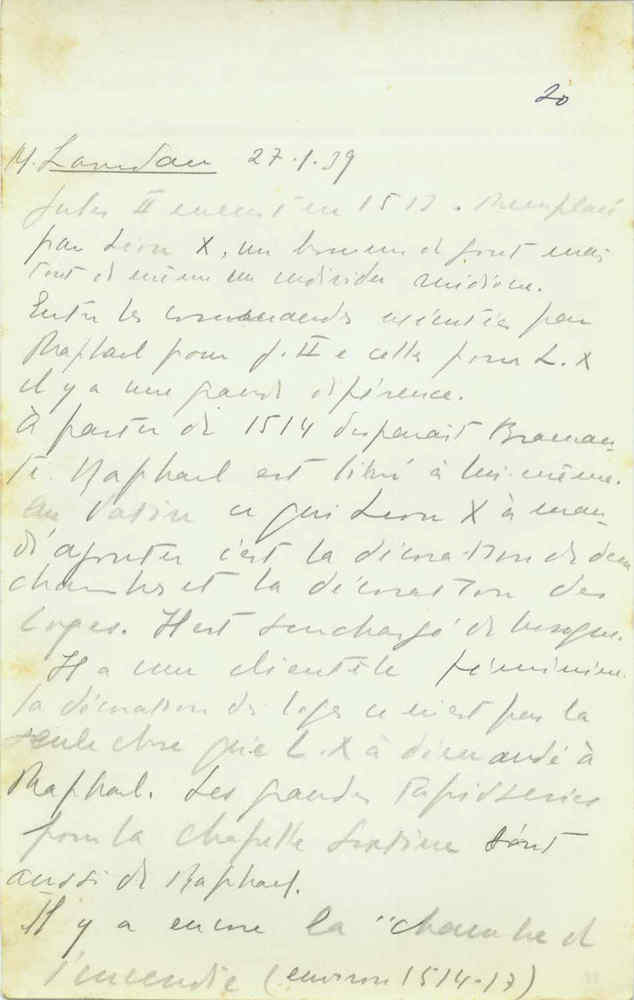 20
M. Landau 27.1.39
Jules II meurt en 1513. Remplacé
par Léon X, un homme de goût mais
tout de même un individu médiocre.
Entre les commandes exécutées par
Raphael pour J. II e celles pour L. X
il y a une grande diférence.
À partir de 1514 disparait Braman-
te. Raphael est livré à lui-même.
au Vatican ce qui Leon X à man-
d'ajouter c'est la décoration de deux
chambres et la décoration des
loges. Il est surchargé de besogne.
Il a une clientèle féminine.
la décoration des loges ce n'est pas la
seule chose que L. X à demandé à
Raphael. Les grandes tapisseries
pour la chapelle Sixtine sont
aussi de Raphael.
Il y a encore la "chambre de
l'incendie (environ 1514-17)